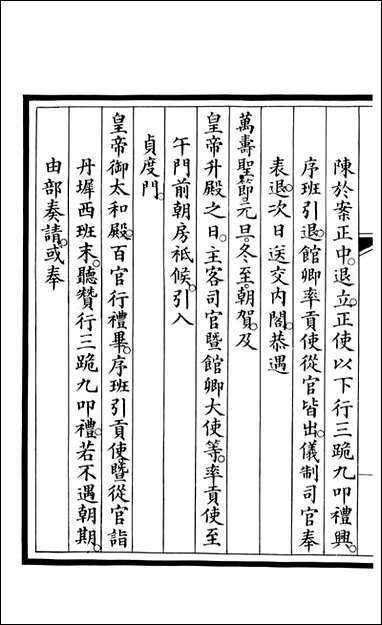 陳於案正中。退立。正使以下行三跪九叩禮興。
序班引退。館卿率貢使從官皆出。儀制司官奉
表退。次日送交內閣。恭遇
萬壽聖節。元旦。冬至。朝賀。及
皇帝升殿之日。主客司官暨館卿大使等。率貢使至
午門前朝房祗候。引入
貞度門。
皇帝御太和殿。百官行禮畢。序班引貢使暨從官詣
丹墀西班末。聽贊行三跪九叩禮。若不遇朝期。
由部奏請。或奉